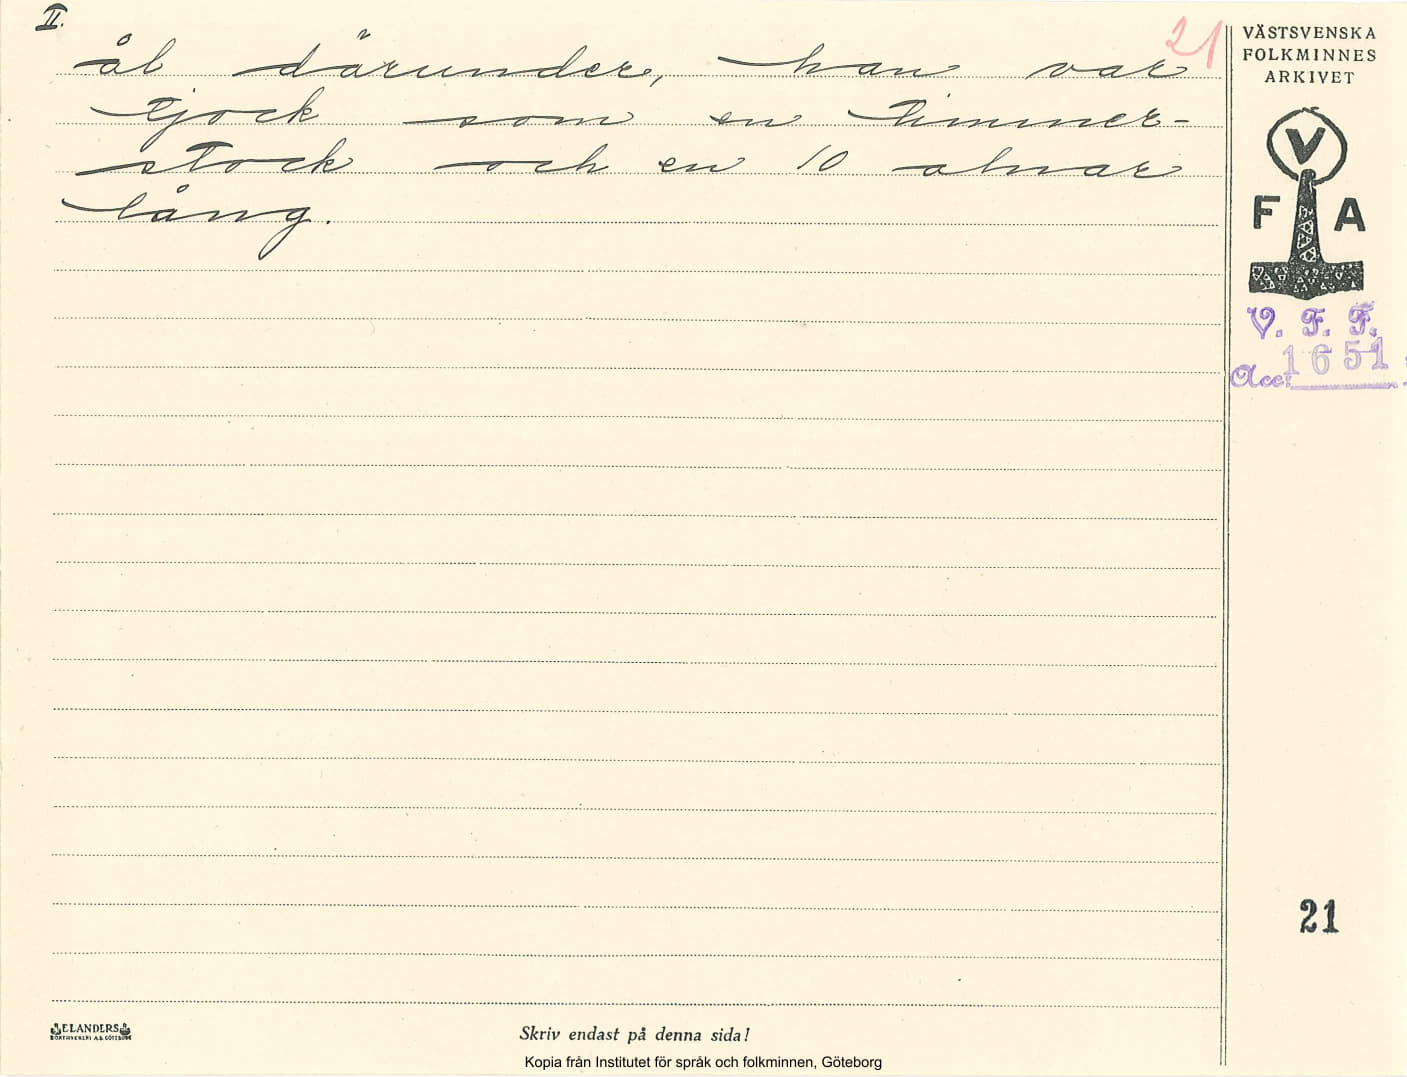 II.
21
ål därunder, han var
tjock som en timmer-
stock och en 10 alnar
lång.
VÄSTSVENSKA
FOLKMINNES
ARKIVET
V
F A
V. F. F.
Acc: 1651
21
ELANDERS
BOKTRYCKERI A.B. GÖTEBORG
Skriv endast på denna sida!
Kopia från Institutet för språk och folkminnen, Göteborg